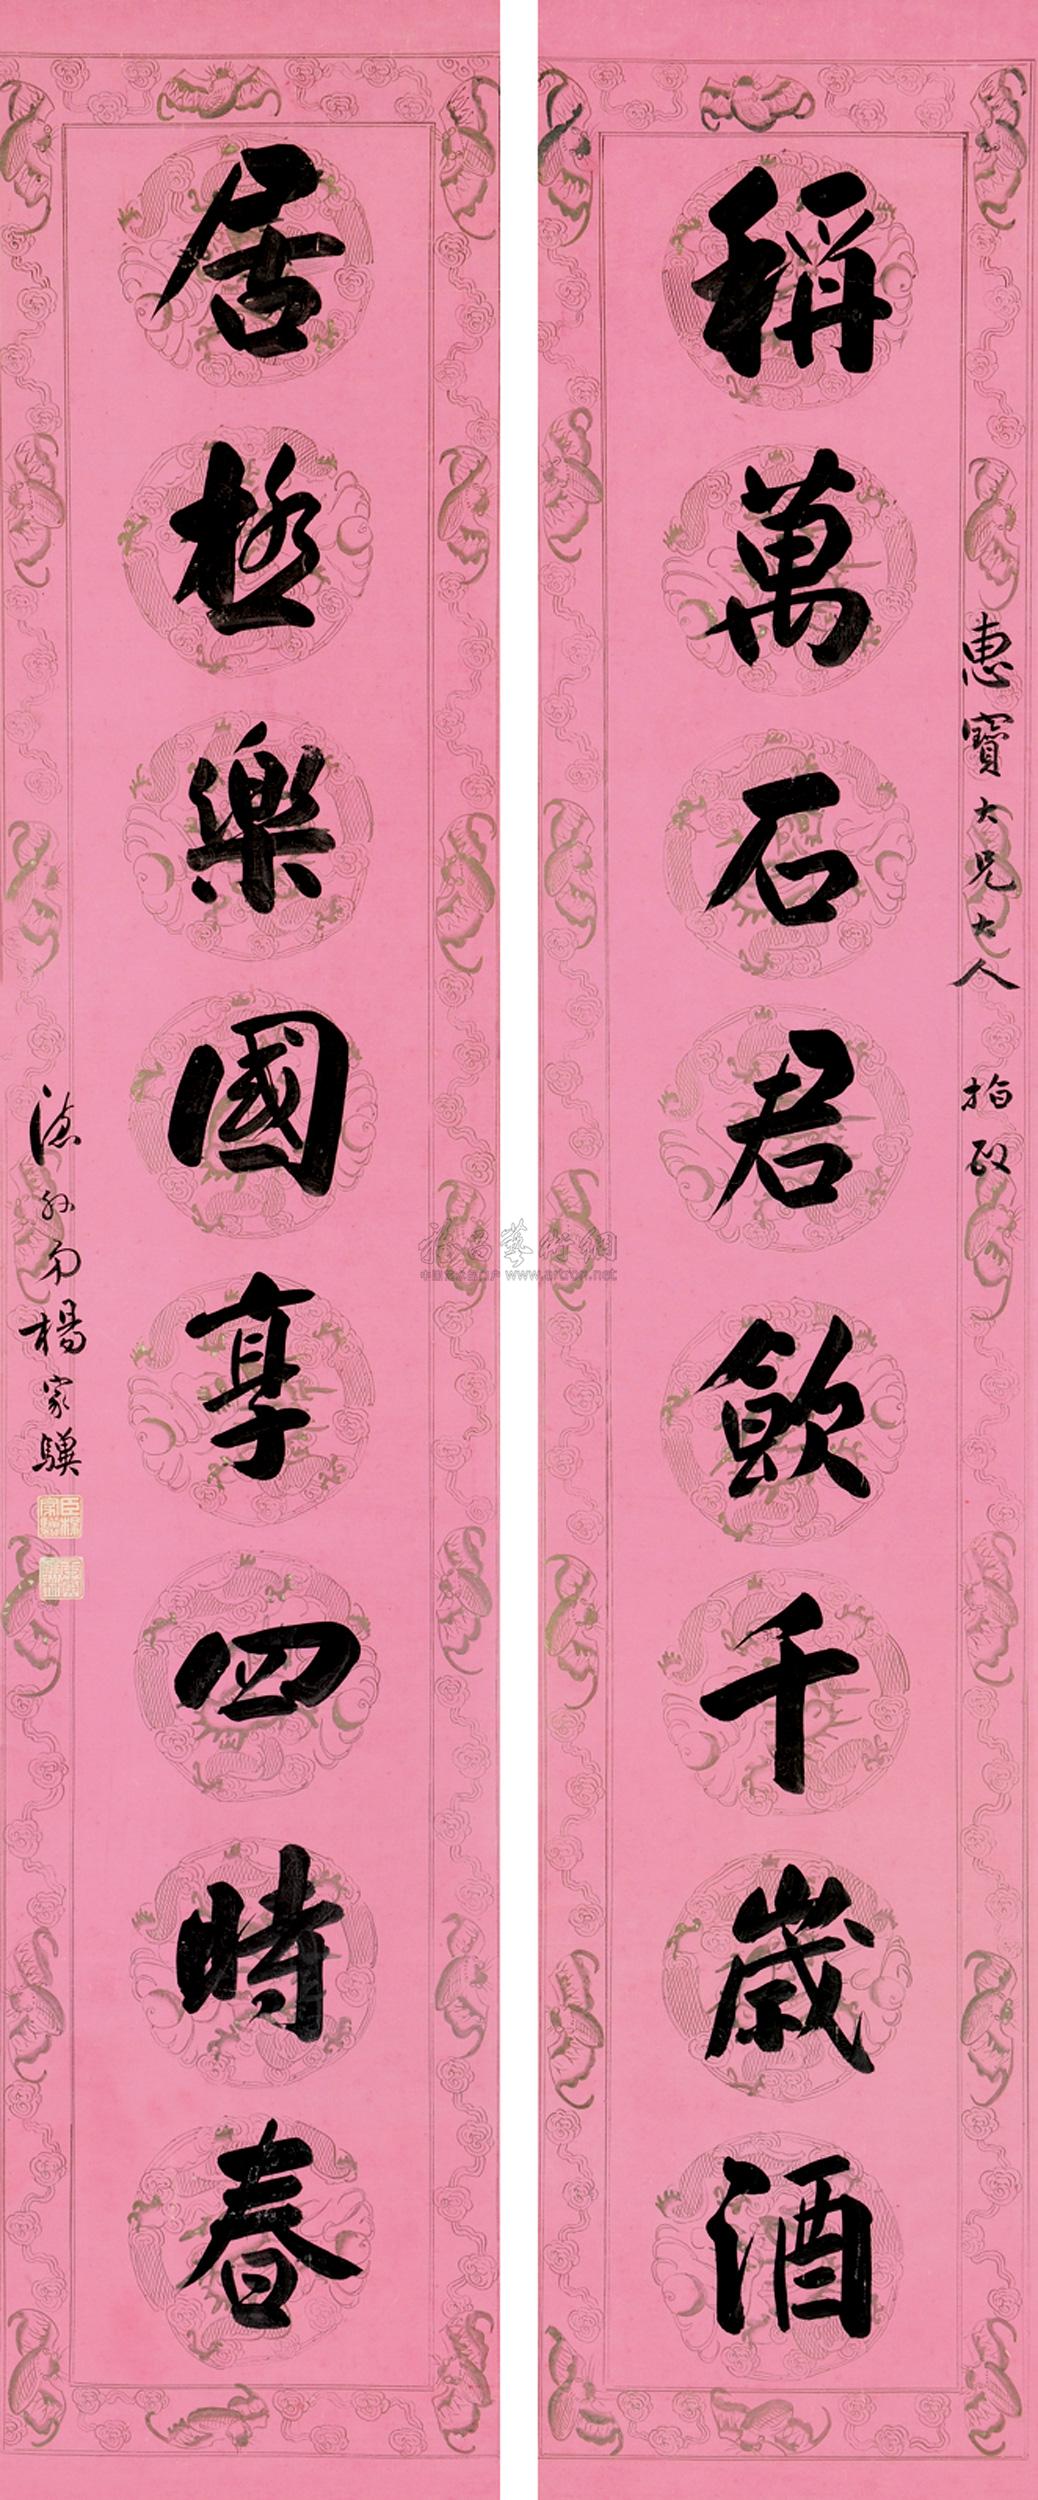 惠寶大兄大人 指政
稱萬石君飲千歲酒
居極樂國享四時春
德孫勿楊家驥
雅昌藝術網
中国艺术品门户 www.artron.net